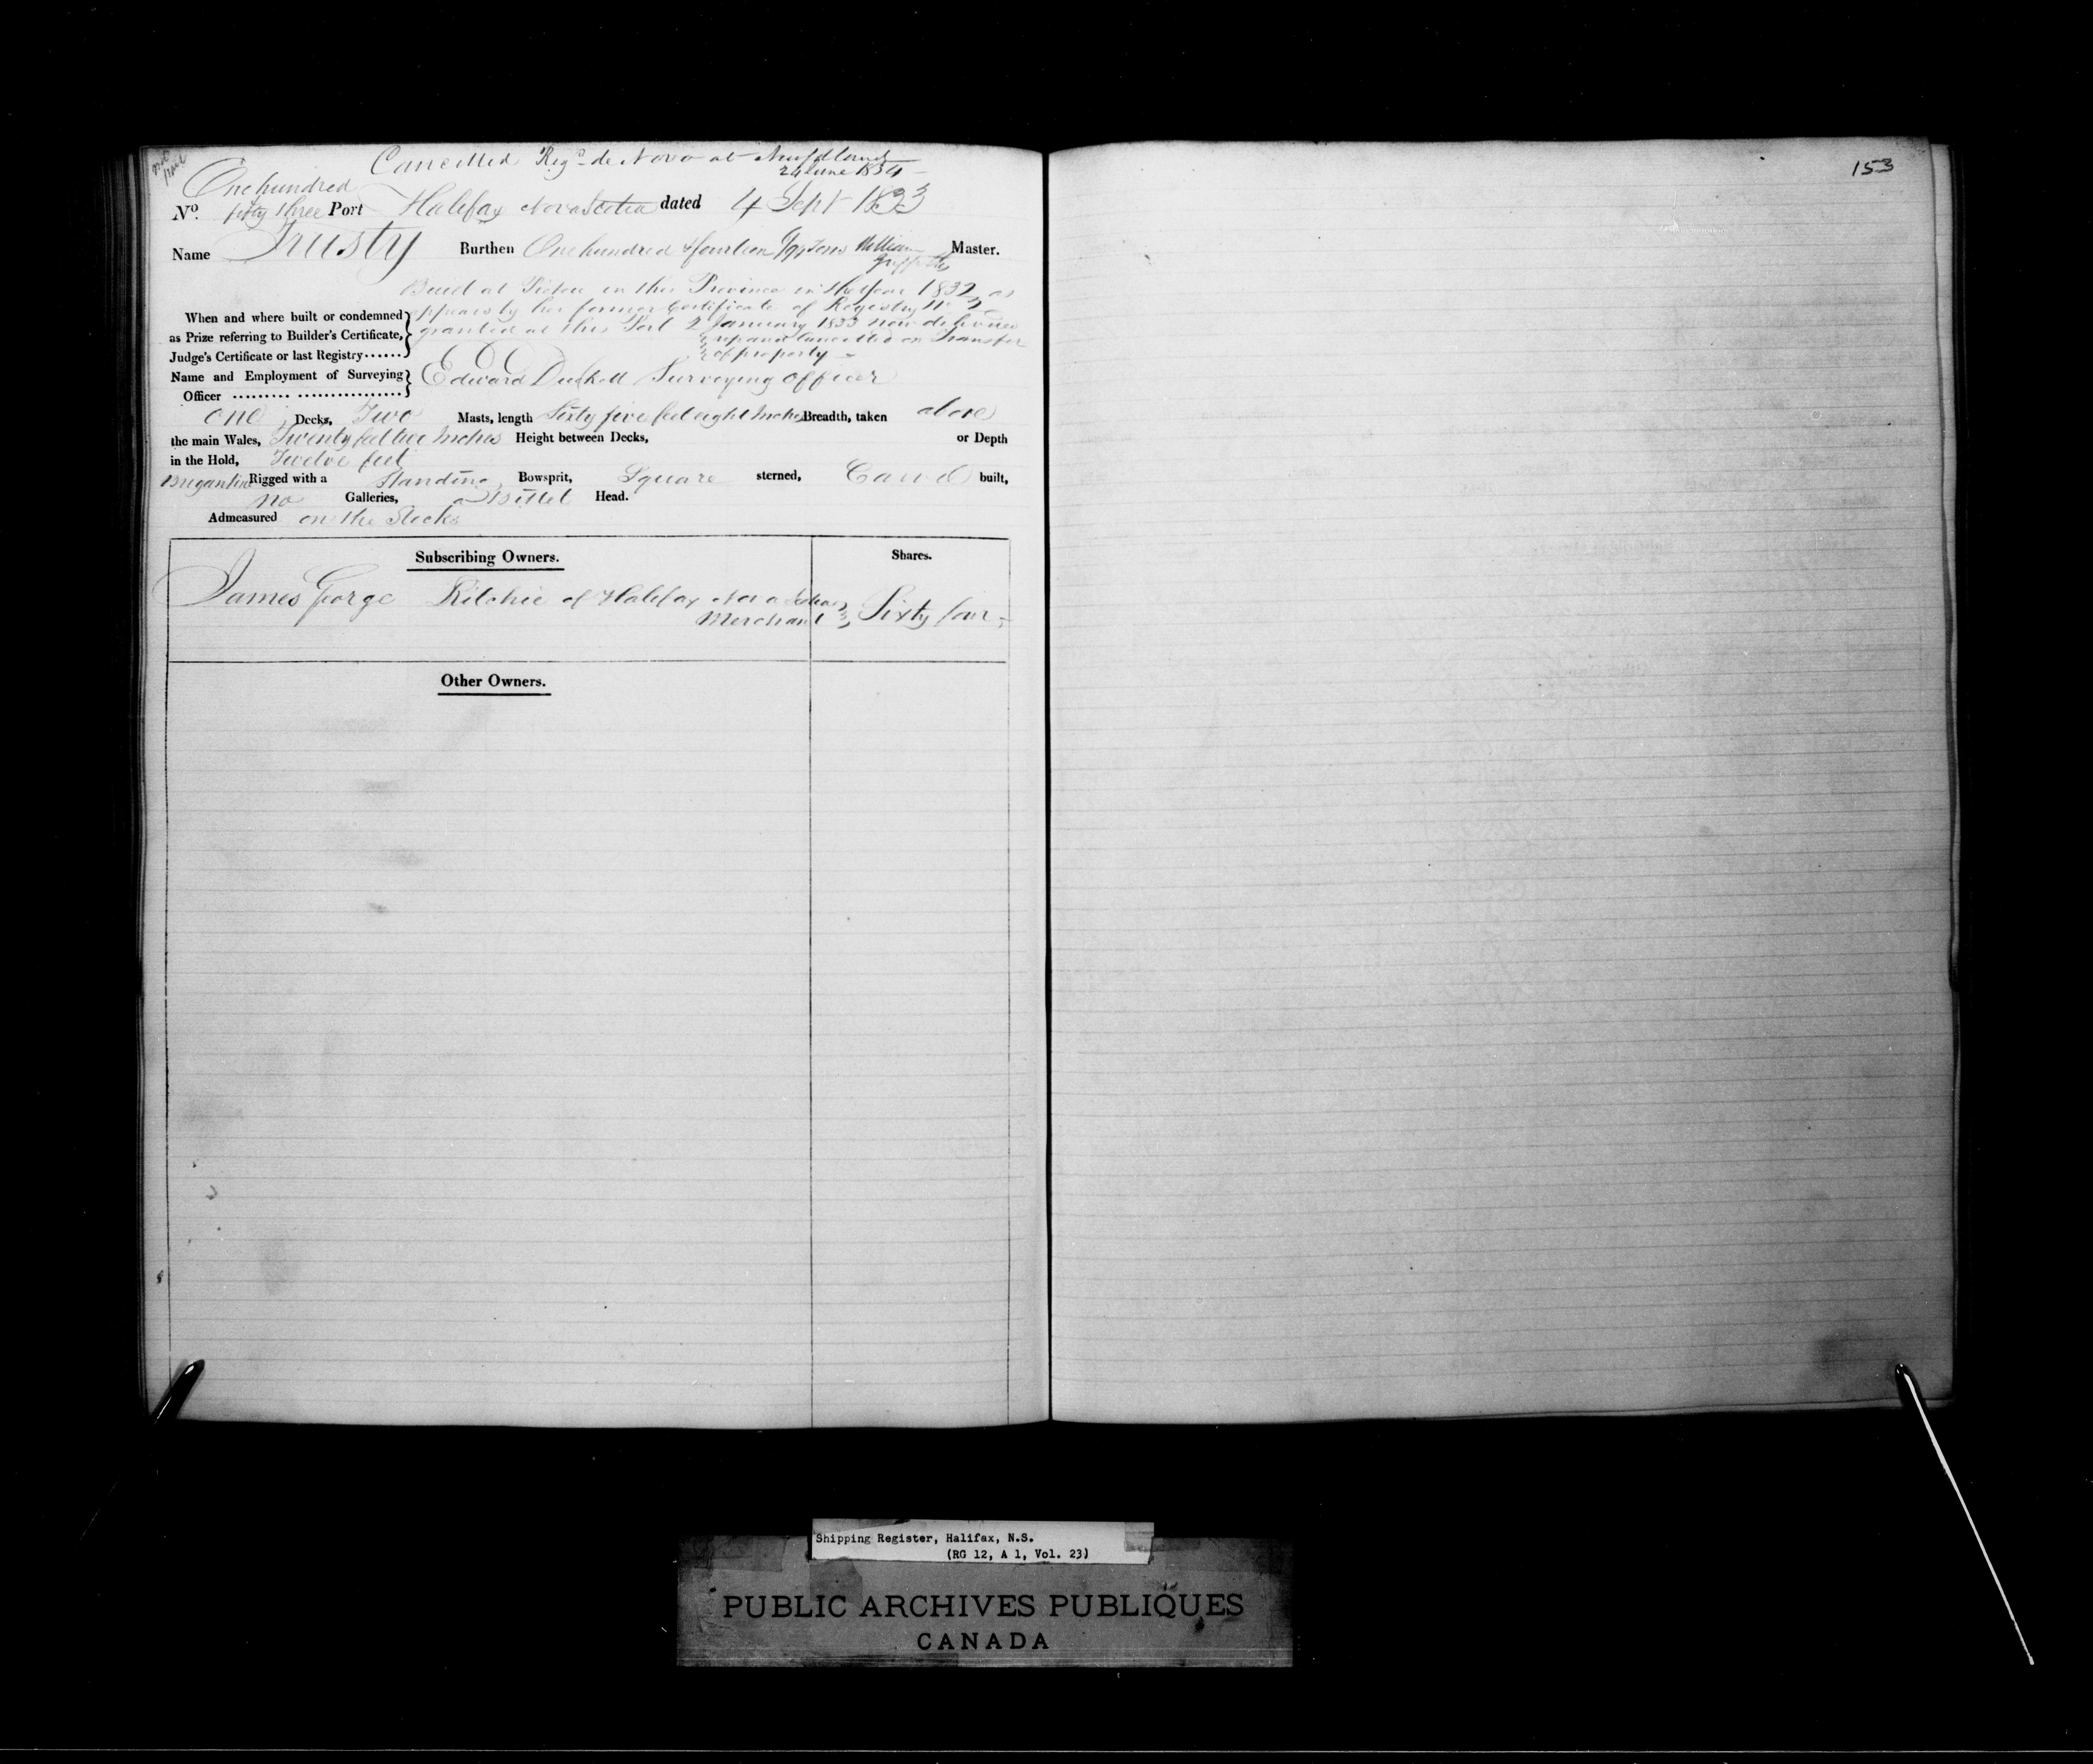 Cancelled Reg.d de Novo at Newfdland
24 June 1834
153
One hundred
No. fifty three Port Halifax Nova Scotia dated 4 Sept 1833
Name Trusty Burthen One hundred & fourteen Tons William Griffiths Master.
Built at Pictou in this Province in the Year 1832 as
appears by her former Certificate of Registry No 2
granted at this Port 2 January 1833 now delivered
up and cancelled on Transfer
of property
When and where built or condemned
as Prize referring to Builder's Certificate,
Judge's Certificate or last Registry......
Name and Employment of Surveying
Officer ......... ................
Edward Duckett Surveying Officer
One Decks, Two Masts, length Sixty five feet eight Inches Breadth, taken above
the main Wales, Twenty feet two Inches Height between Decks, or Depth
in the Hold, Twelve feet
Brigantine Rigged with a Standing Bowsprit, Square sterned, Carvel built,
no Galleries, a Billet Head.
Admeasured on the Stocks
Subscribing Owners. Shares.
James George Ritchie of Halifax Nova Scotia
Merchant Sixty four
Other Owners.
Shipping Register, Halifax, N.S.
(RG 12, A 1, Vol. 23)
PUBLIC ARCHIVES PUBLIQUES
CANADA